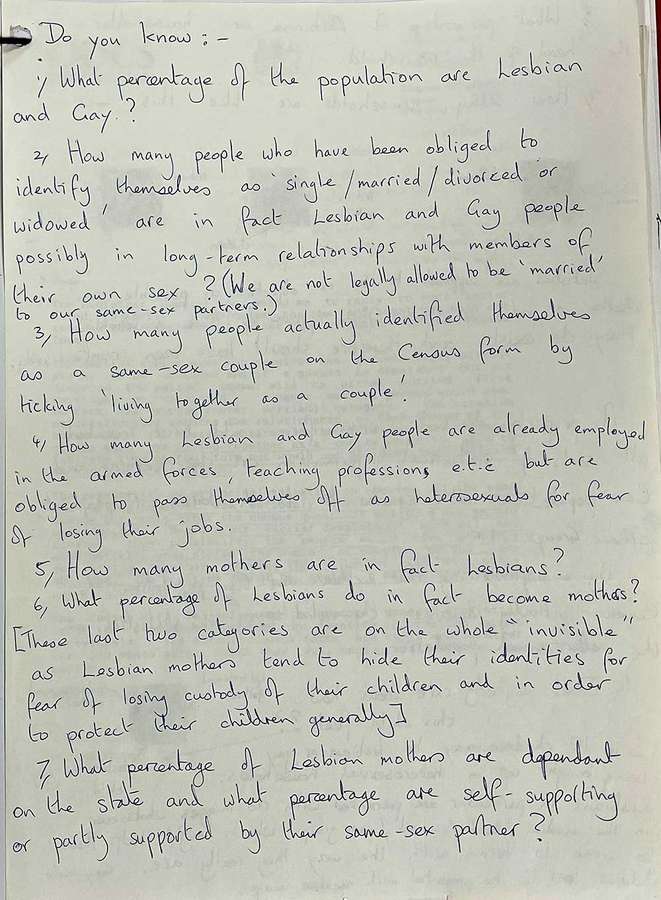 Do you know :-
1, What percentage of the population are Lesbian
and Gay.?
2, How many people who have been obliged to
identify themselves as 'single/married/divorced or
widowed' are in fact Lesbian and Gay people
possibly in long-term relationships with members of
their own sex ? (We are not legally allowed to be 'married'
to our same-sex partners.)
3, How many people actually identified themselves
as a same-sex couple on the Census form by
ticking 'living together as a couple'.
4, How many Lesbian and Gay people are already employed
in the armed forces, teaching professions e.t.c but are
obliged to pass themselves off as heterosexuals for fear
of losing their jobs.
5, How many mothers are in fact Lesbians?
6, What percentage of Lesbians do in fact become mothers?
[These last two categories are on the whole "invisible"
as Lesbian mothers tend to hide their identities for
fear of losing custody of their children and in order
to protect their children generally]
7, What percentage of Lesbian mothers are dependant
on the state and what percentage are self-supporting
or partly supported by their same-sex partner?